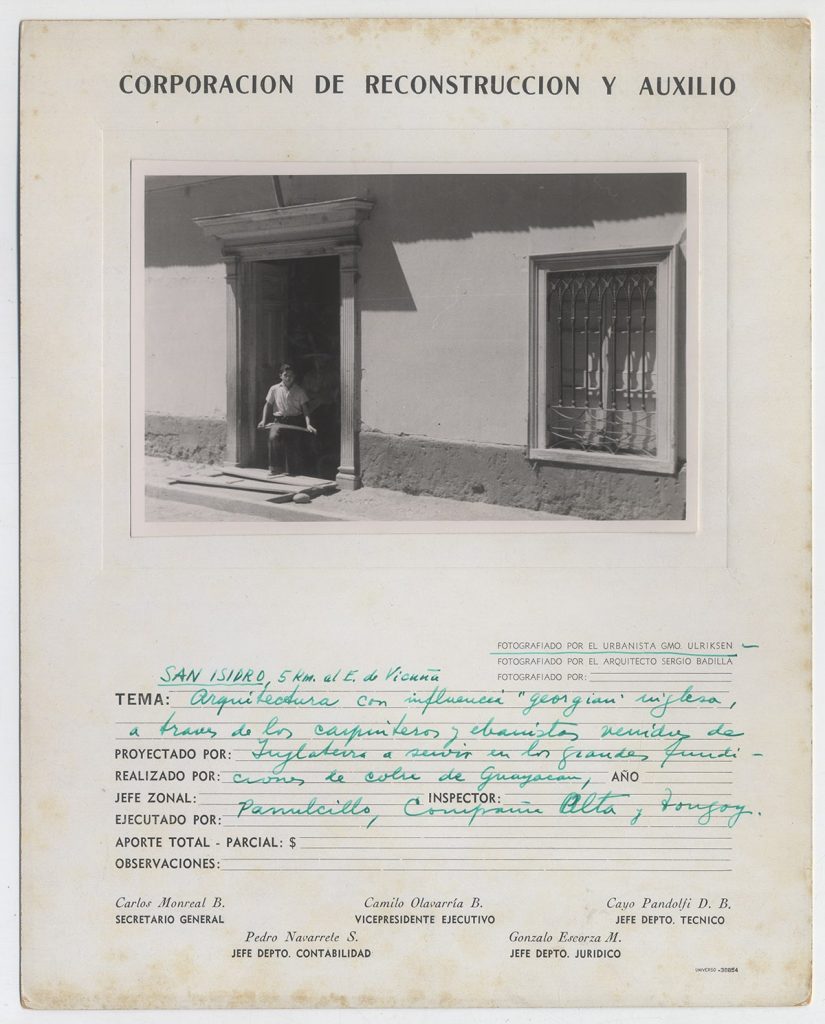 CORPORACION DE RECONSTRUCCION Y AUXILIO
FOTOGRAFIADO POR EL URBANISTA GMO. ULRIKSEN
FOTOGRAFIADO POR EL ARQUITECTO SERGIO BADILLA
FOTOGRAFIADO POR:
SAN ISIDRO, 5 Km. al E. de Vicuña
TEMA: Arquitectura con influencia "georgian" inglesa,
a traves de los carpinteros y ebanistas venidos de
PROYECTADO POR: Inglaterra a servir en las grandes fundi-
REALIZADO POR: ciones de cobre de Guayacan, AÑO
JEFE ZONAL: INSPECTOR:
EJECUTADO POR: Panulcillo, Compañia Alta y Tongoy.
APORTE TOTAL - PARCIAL: $
OBSERVACIONES:
Carlos Monreal B. Camilo Olavarría B. Cayo Pandolfi D. B.
SECRETARIO GENERAL VICEPRESIDENTE EJECUTIVO JEFE DEPTO. TECNICO
Pedro Navarrete S. Gonzalo Escorza M.
JEFE DEPTO. CONTABILIDAD JEFE DEPTO. JURIDICO
UNIVERSO -38854